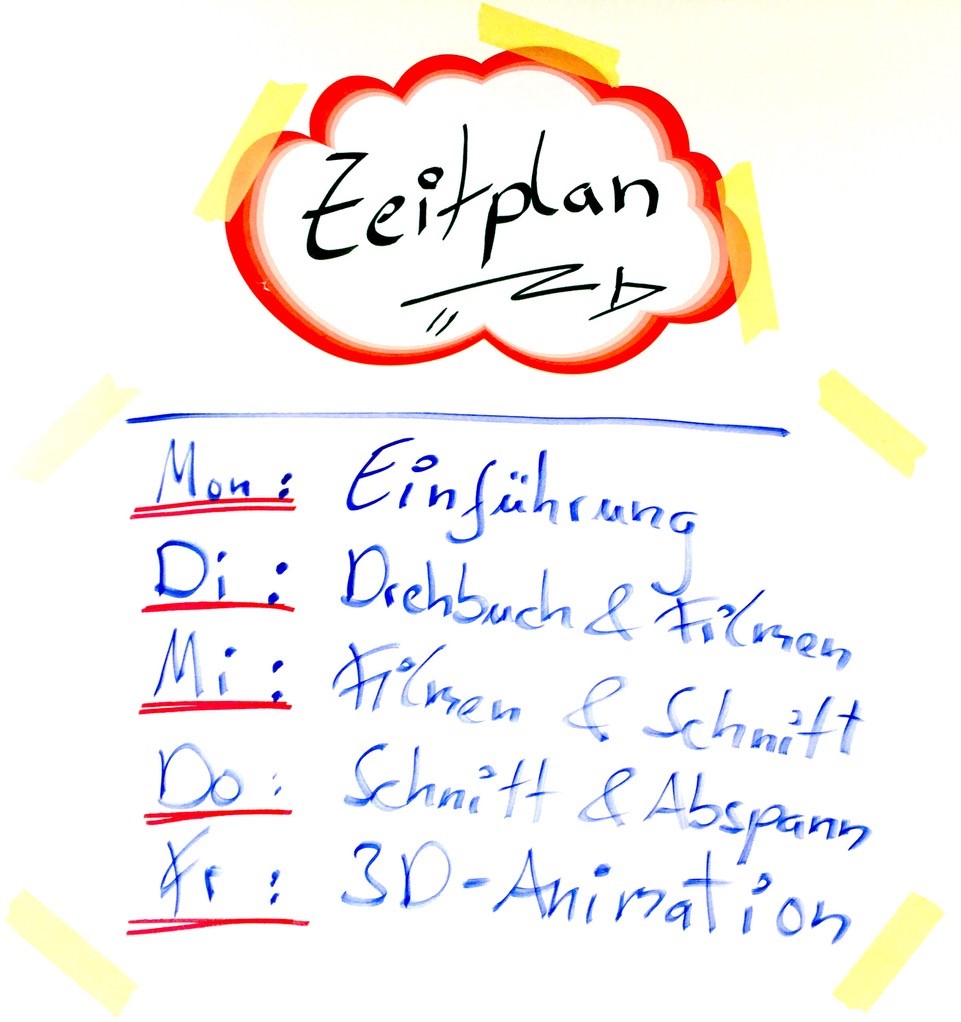 Zeitplan
Mon: Einführung
Di: Drehbuch & Filmen
Mi: Filmen & Schnitt
Do: Schnitt & Abspann
Fr: 3D-Animation